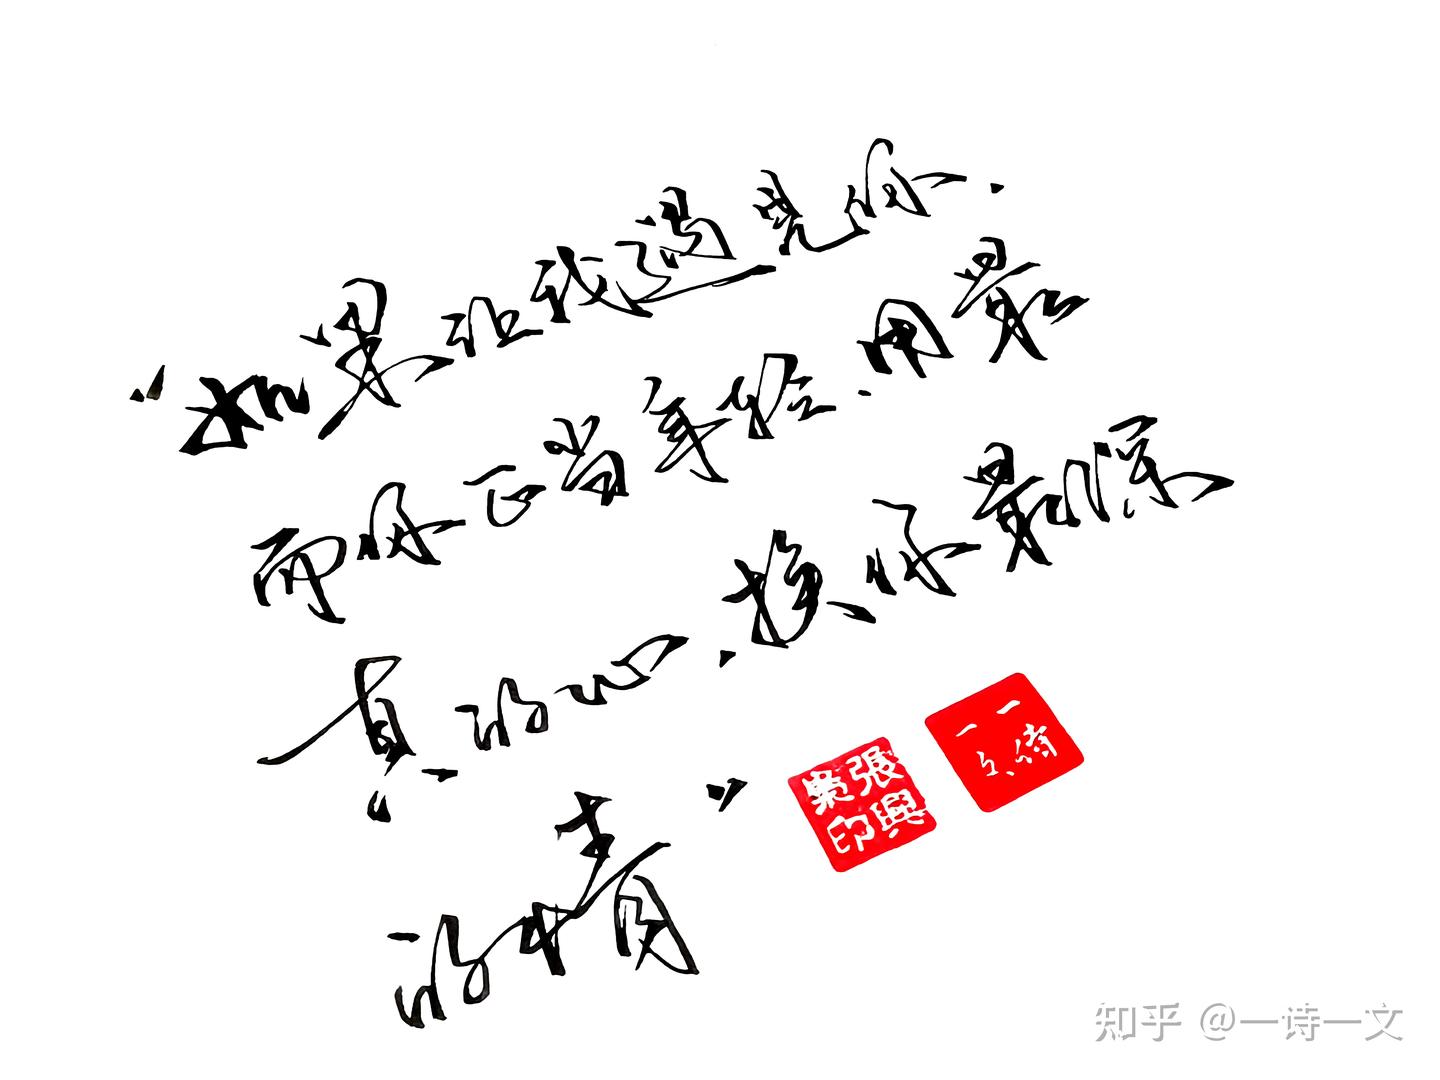 “如果让我遇见你.
而你正当年轻.用最
真的心.换你最深
的情”
張興
業印
一诗
一文
知乎 @一诗一文